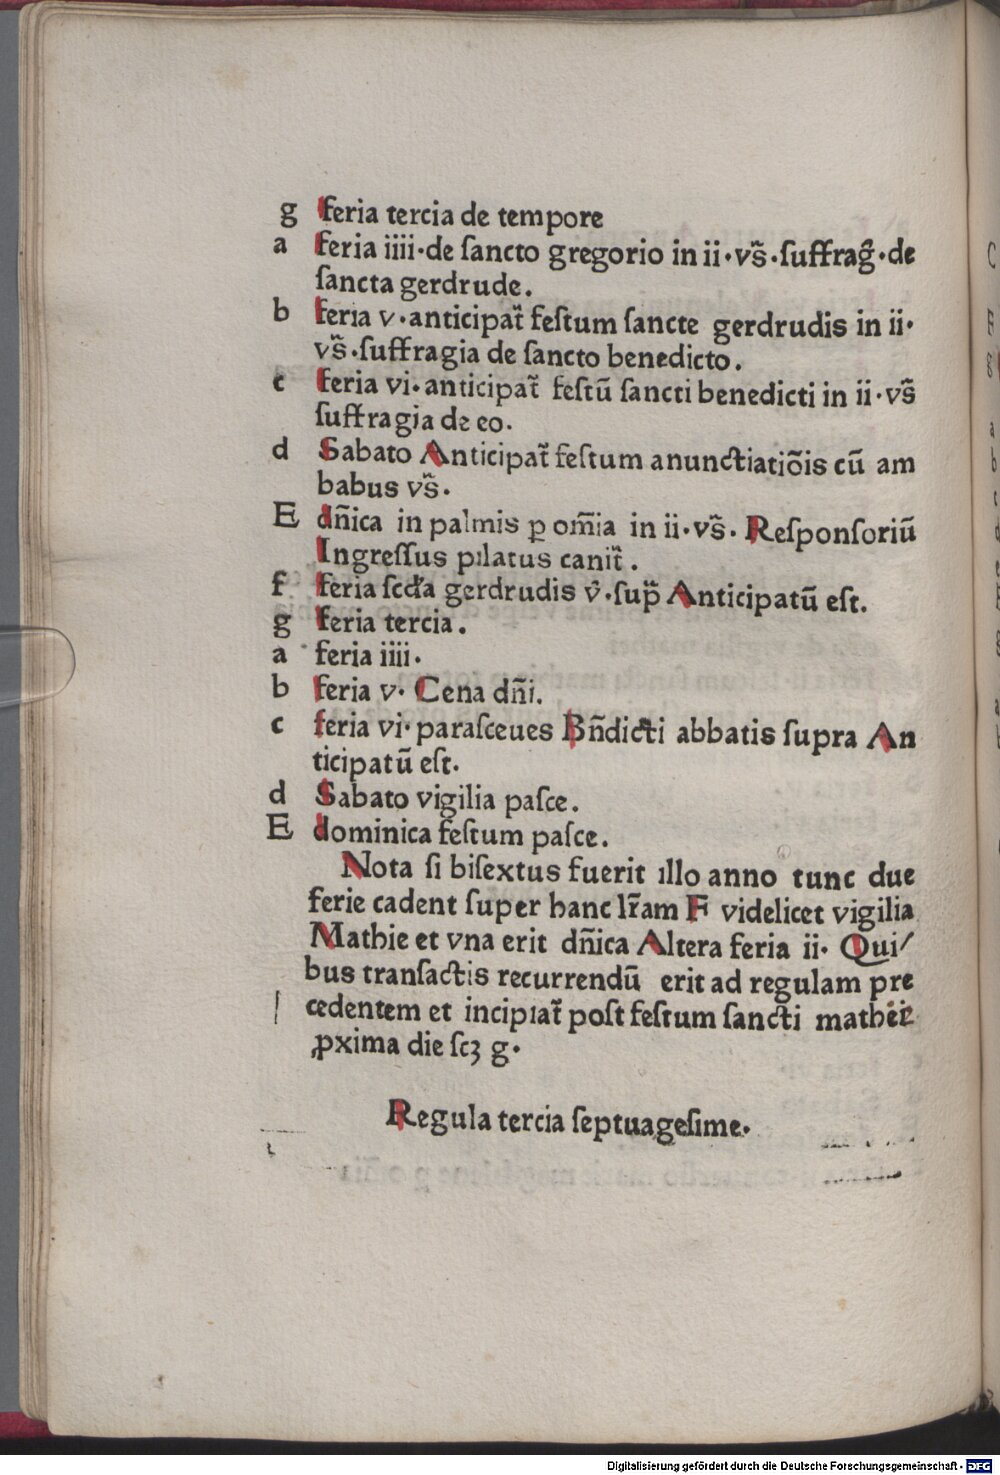 g feria tercia de tempore
a feria iiii·de ſancto gregorio in ii·vs̃·ſuffrag̃·de
ſancta gerdrude.
b feria v·anticipat̃ feſtum ſancte gerdrudis in ii·
vs̃·ſuffragia de ſancto benedicto.
c feria vi·anticipat̃ feſtū ſancti benedicti in ii·vs̃
ſuffragia de eo.
d Sabato Anticipat̃ feſtum anunctiatiōis cū am
babus vs̃·
E dn̄ica in palmis ꝑ om̄ia in ii·vs̃· Reſponſoriū
Ingreſſus pılatus canit̃.
f feria ſcd̃a gerdrudis v̾·ſup̃ Anticipatū eſt.
g feria tercia.
a feria iiii·
b feria v· Cena dn̄i.
c feria vi· paraſceues Bn̄dicti abbatis ſupra An
ticipatū eſt.
d Sabato vigilia paſce.
E dominica feſtum paſce.
Nota ſi biſextus fuerit ıllo anno tunc due
ferie cadent ſuper hanc lr̃am F videlicet vigilia
Mathie et vna erit dn̄ica Altera feria ii· Qui/
bus tranſactis recurrendū erit ad regulam pre
cedentem et incipıat̃ poſt feſtum ſancti mathei
ꝓxima die ſcꝫ g·
Regula tercia ſeptuageſime·
Digitalisierung gefördert durch die Deutsche Forschungsgemeinschaft - DFG